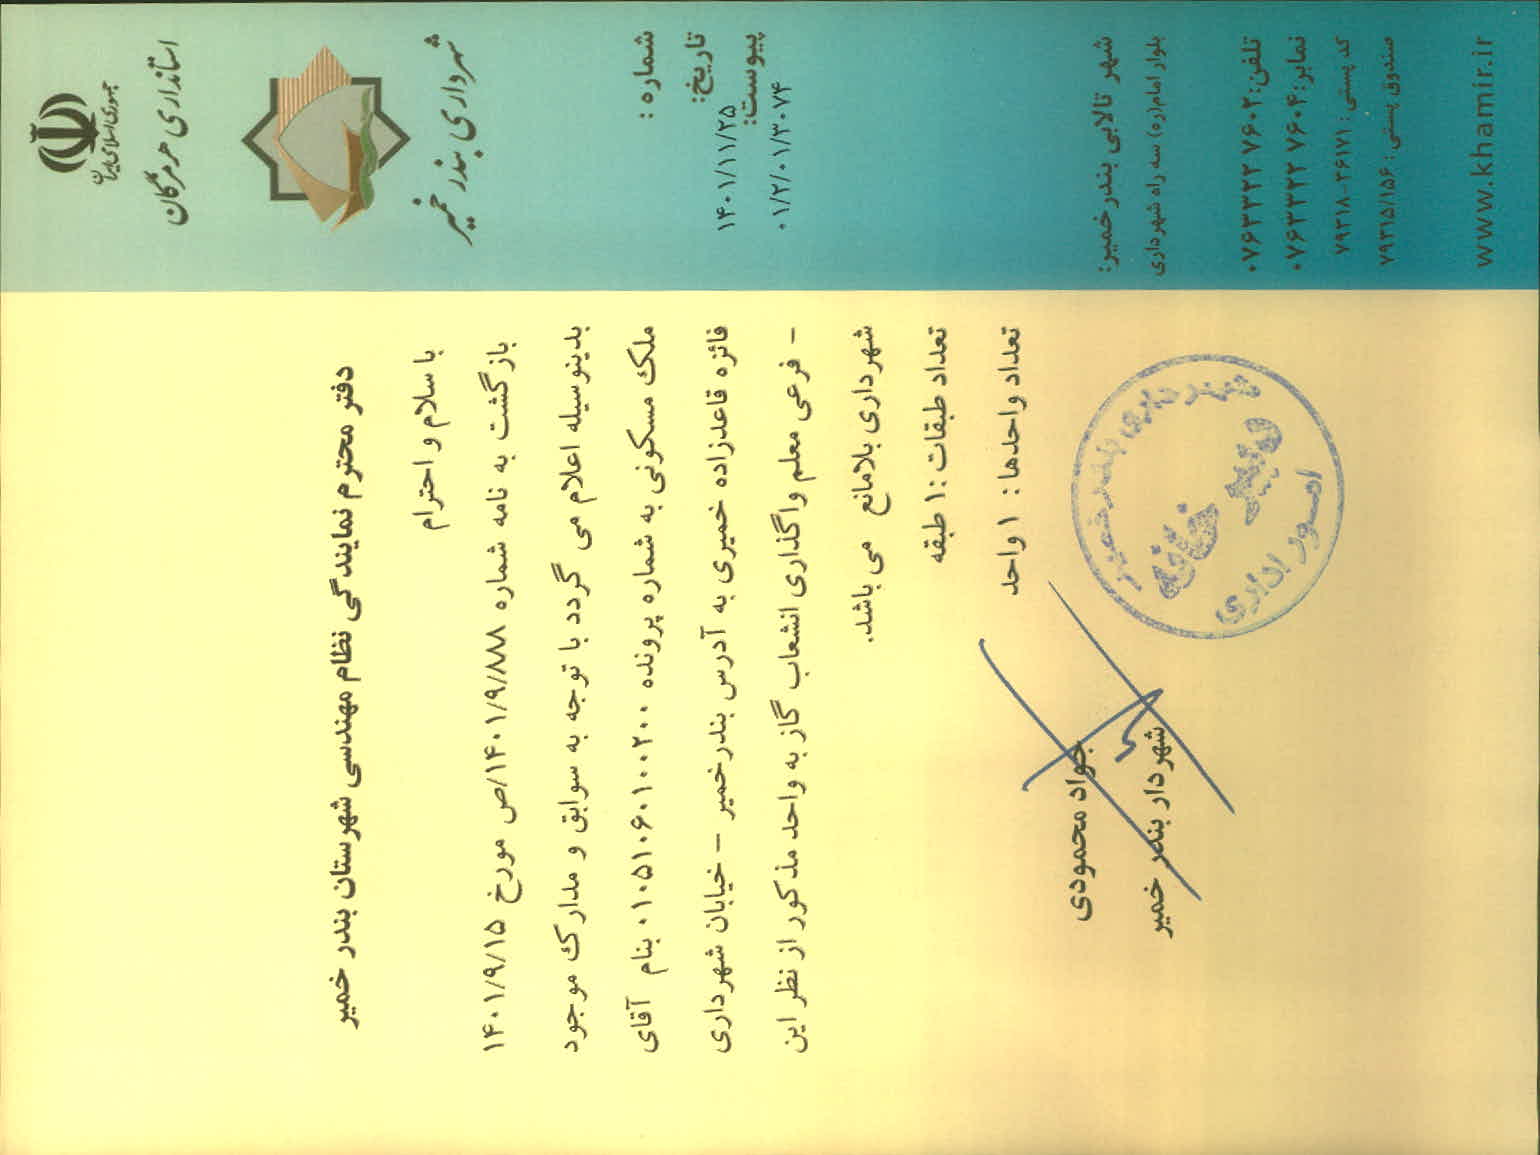 جمهوری اسلامی ایران
استانداری هرمزگان
شهرداری بندر خمیر
شماره :
تاریخ:
۱۴۰۱/۱۱/۲۵
پیوست:
۰۱/۲/۰۱/۳۰۷۴
شهر تالابی بندر خمیر:
بلوار امام(ره) سه راه شهرداری
تلفن: ۰۷۶۳۳۲۲ ۷۶۰۲
نمابر: ۰۷۶۳۳۲۲ ۷۶۰۴
کد پستی : ۷۹۳۱۸-۳۶۱۷۱
صندوق پستی : ۷۹۳۱۵/۱۵۶
www.khamir.ir
دفتر محترم نمایندگی نظام مهندسی شهرستان بندر خمیر
با سلام و احترام
بازگشت به نامه شماره ۱۴۰۱/۹/۸۸۸/ص مورخ ۱۴۰۱/۹/۱۵
بدینوسیله اعلام می گردد با توجه به سوابق و مدارک موجود
ملک مسکونی به شماره پرونده ۰۱۰۵۱۰۶۰۱۰۰۲۰۰ بنام آقای
فائزه قاعدزاده خمیری به آدرس بندر خمیر – خیابان شهرداری
– فرعی معلم واگذاری انشعاب گاز به واحد مذکور از نظر این
شهرداری بلامانع می باشد.
تعداد طبقات :۱ طبقه
تعداد واحدها : ۱ واحد
جواد محمودی
شهردار بندر خمیر
شهرداری بندر خمیر
دبیر خانه
امور اداری